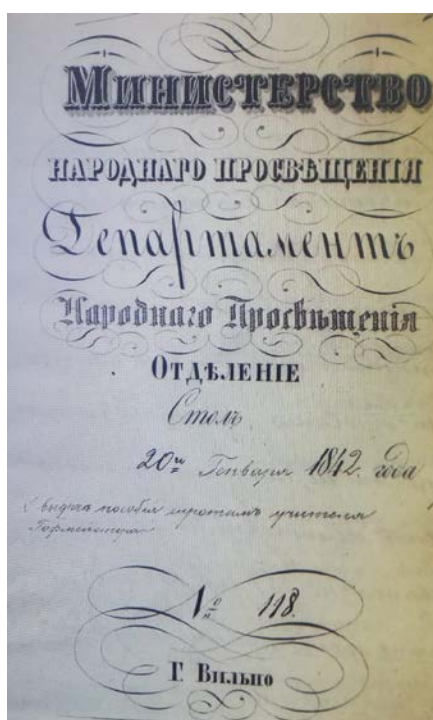 МИНИСТЕРСТВО
НАРОДНАГО ПРОСВѢЩЕНІЯ
Департаментъ
Народнаго Просвѣщенія
ОТДѢЛЕНІЕ
Столъ
20го Генваря 1842. года
выдачѣ пособія сиротамъ учителя
№ 118.
Г. Вильно